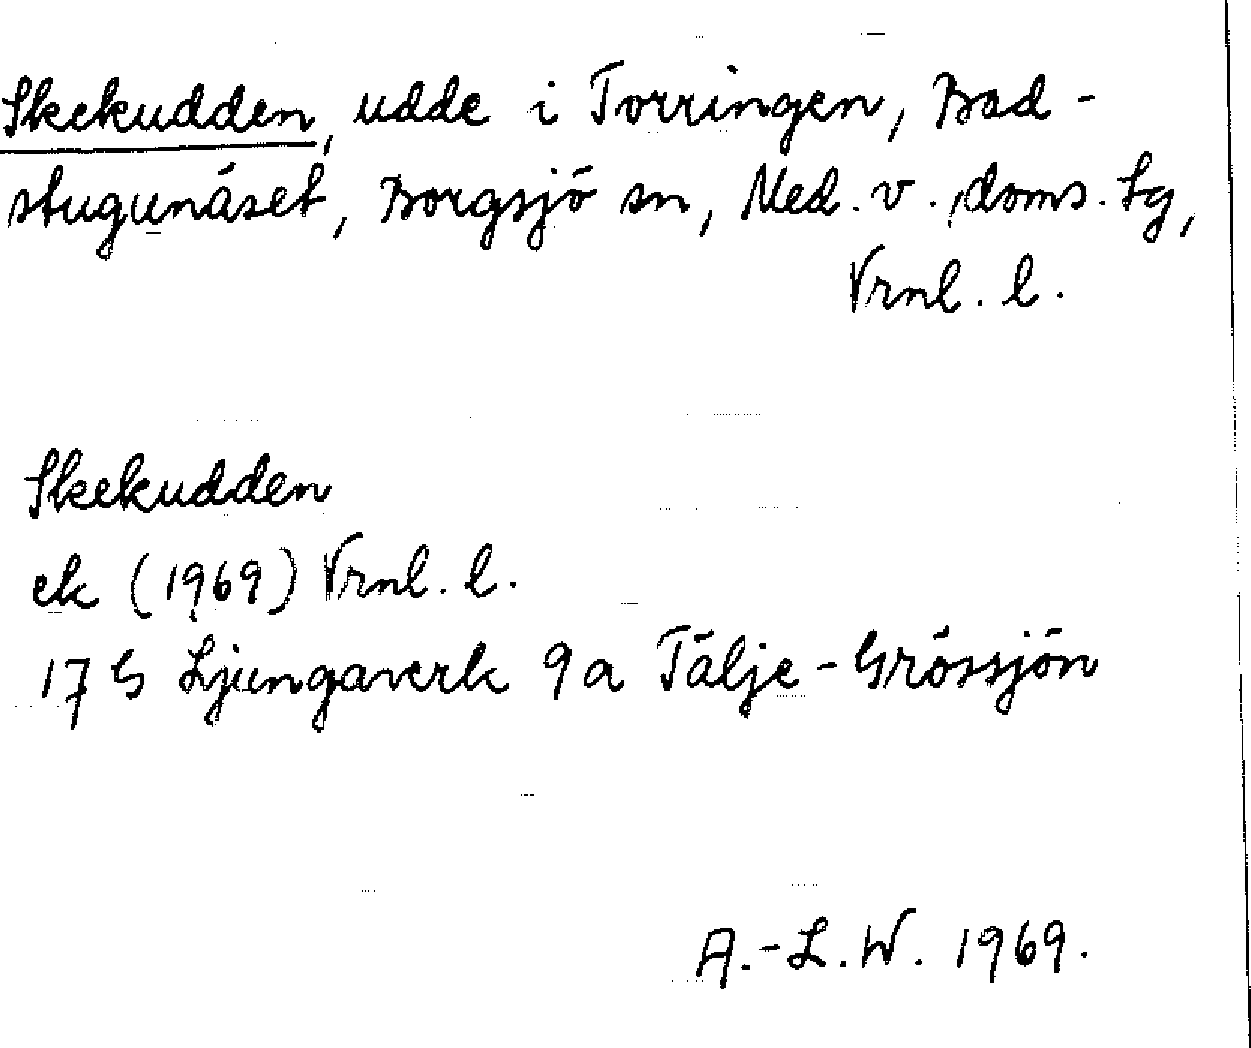 Skekudden, udde i Torringen, Bad-
stugunäset, Borgsjö sn, Med. v. doms. tg,
Vrnl. l.
Skekudden
ek (1969) Vrnl. l.
17 G Ljungaverk 9a Tälje-Grössjön
A.-L.W. 1969.